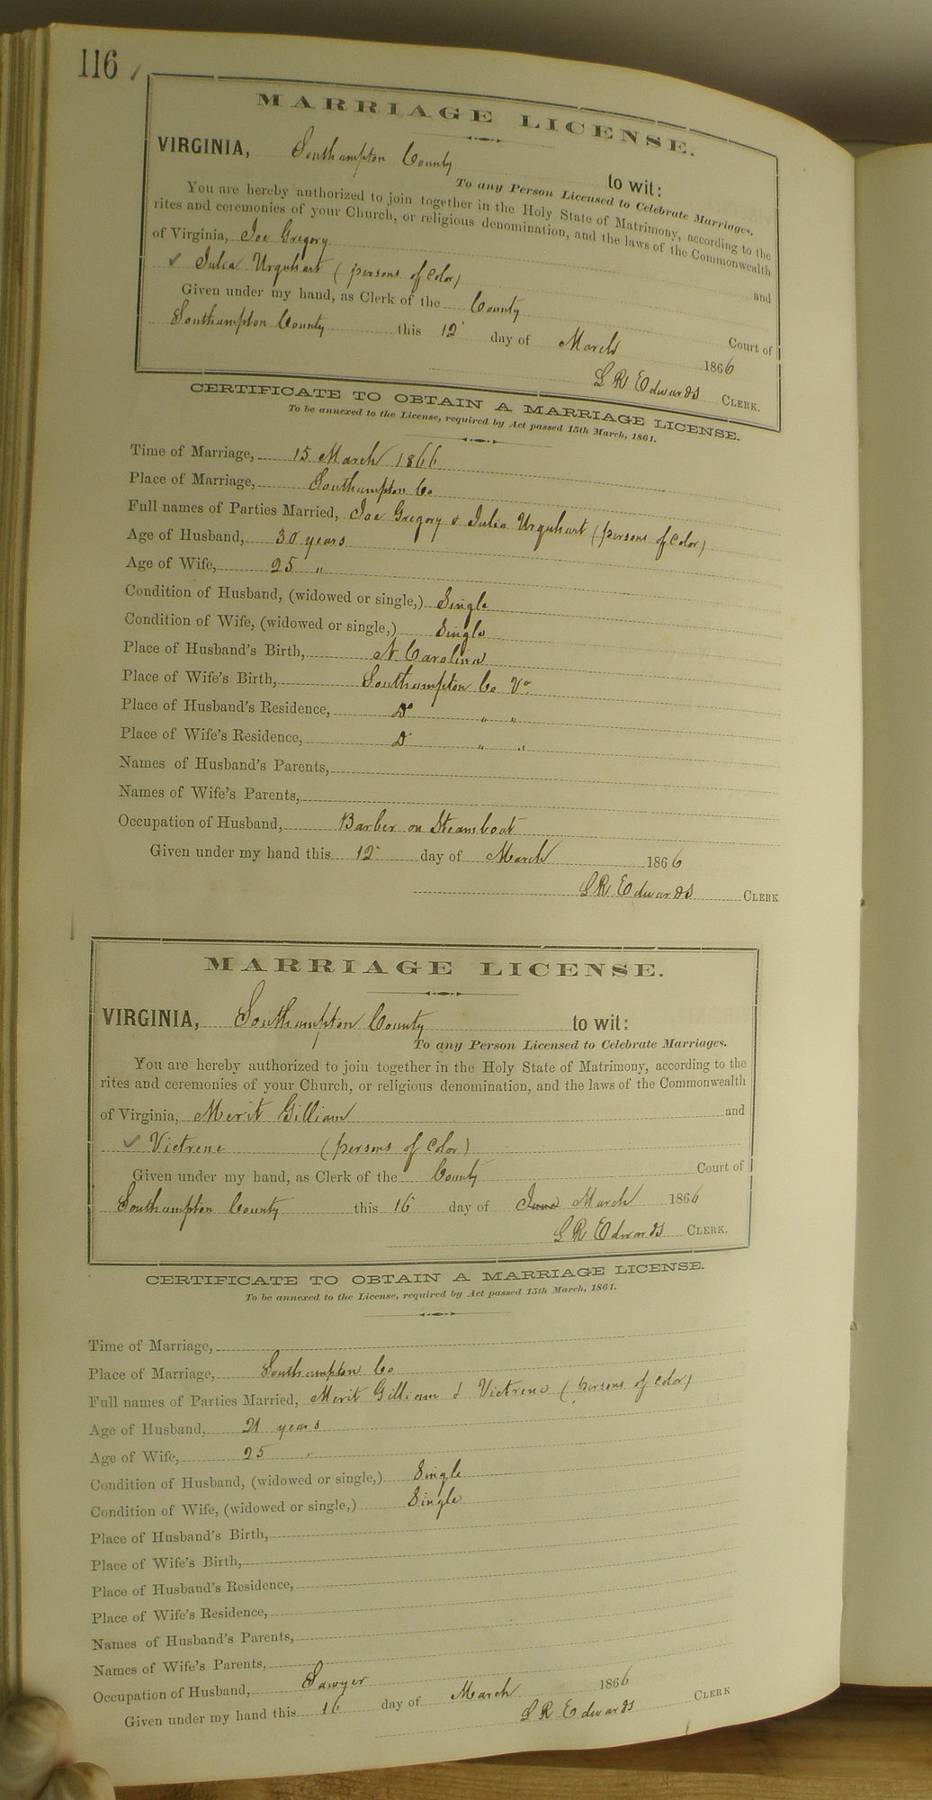 116
MARRIAGE LICENSE.
VIRGINIA, Southampton County to wit:
To any Person Licensed to Celebrate Marriages.
You are hereby authorized to join together in the Holy State of Matrimony, according to the
rites and ceremonies of your Church, or religious denomination, and the laws of the Commonwealth
of Virginia, Joe Gregory and
✓ Julia Urquhart (persons of Color)
Given under my hand, as Clerk of the County Court of
Southampton County this 12 day of March 1866
L R Edwards CLERK.
CERTIFICATE TO OBTAIN A MARRIAGE LICENSE.
To be annexed to the License, required by Act passed 15th March, 1861.
Time of Marriage, 15 March 1866
Place of Marriage, Southampton Co
Full names of Parties Married, Joe Gregory & Julia Urquhart (persons of Color)
Age of Husband, 30 years
Age of Wife, 25 "
Condition of Husband, (widowed or single,) Single
Condition of Wife, (widowed or single,) Single
Place of Husband's Birth, N. Carolina
Place of Wife's Birth, Southampton Co Va
Place of Husband's Residence, Do " "
Place of Wife's Residence, Do " "
Names of Husband's Parents,
Names of Wife's Parents,
Occupation of Husband, Barber on Steamboat
Given under my hand this 12 day of March 1866
L R Edwards CLERK
MARRIAGE LICENSE.
VIRGINIA, Southampton County to wit:
To any Person Licensed to Celebrate Marriages.
You are hereby authorized to join together in the Holy State of Matrimony, according to the
rites and ceremonies of your Church, or religious denomination, and the laws of the Commonwealth
of Virginia, Merit Gilliam and
✓ Victrene (persons of Color)
Given under my hand, as Clerk of the County Court of
Southampton County this 16 day of June March 1866
L R Edwards CLERK.
CERTIFICATE TO OBTAIN A MARRIAGE LICENSE.
To be annexed to the License, required by Act passed 15th March, 1861.
Time of Marriage,
Place of Marriage, Southampton Co
Full names of Parties Married, Merit Gilliam & Victrene (persons of Color)
Age of Husband, 21 years
Age of Wife, 25 "
Condition of Husband, (widowed or single,) Single
Condition of Wife, (widowed or single,) Single
Place of Husband's Birth,
Place of Wife's Birth,
Place of Husband's Residence,
Place of Wife's Residence,
Names of Husband's Parents,
Names of Wife's Parents,
Occupation of Husband, Sawyer
Given under my hand this 16 day of March 1866
L R Edwards CLERK